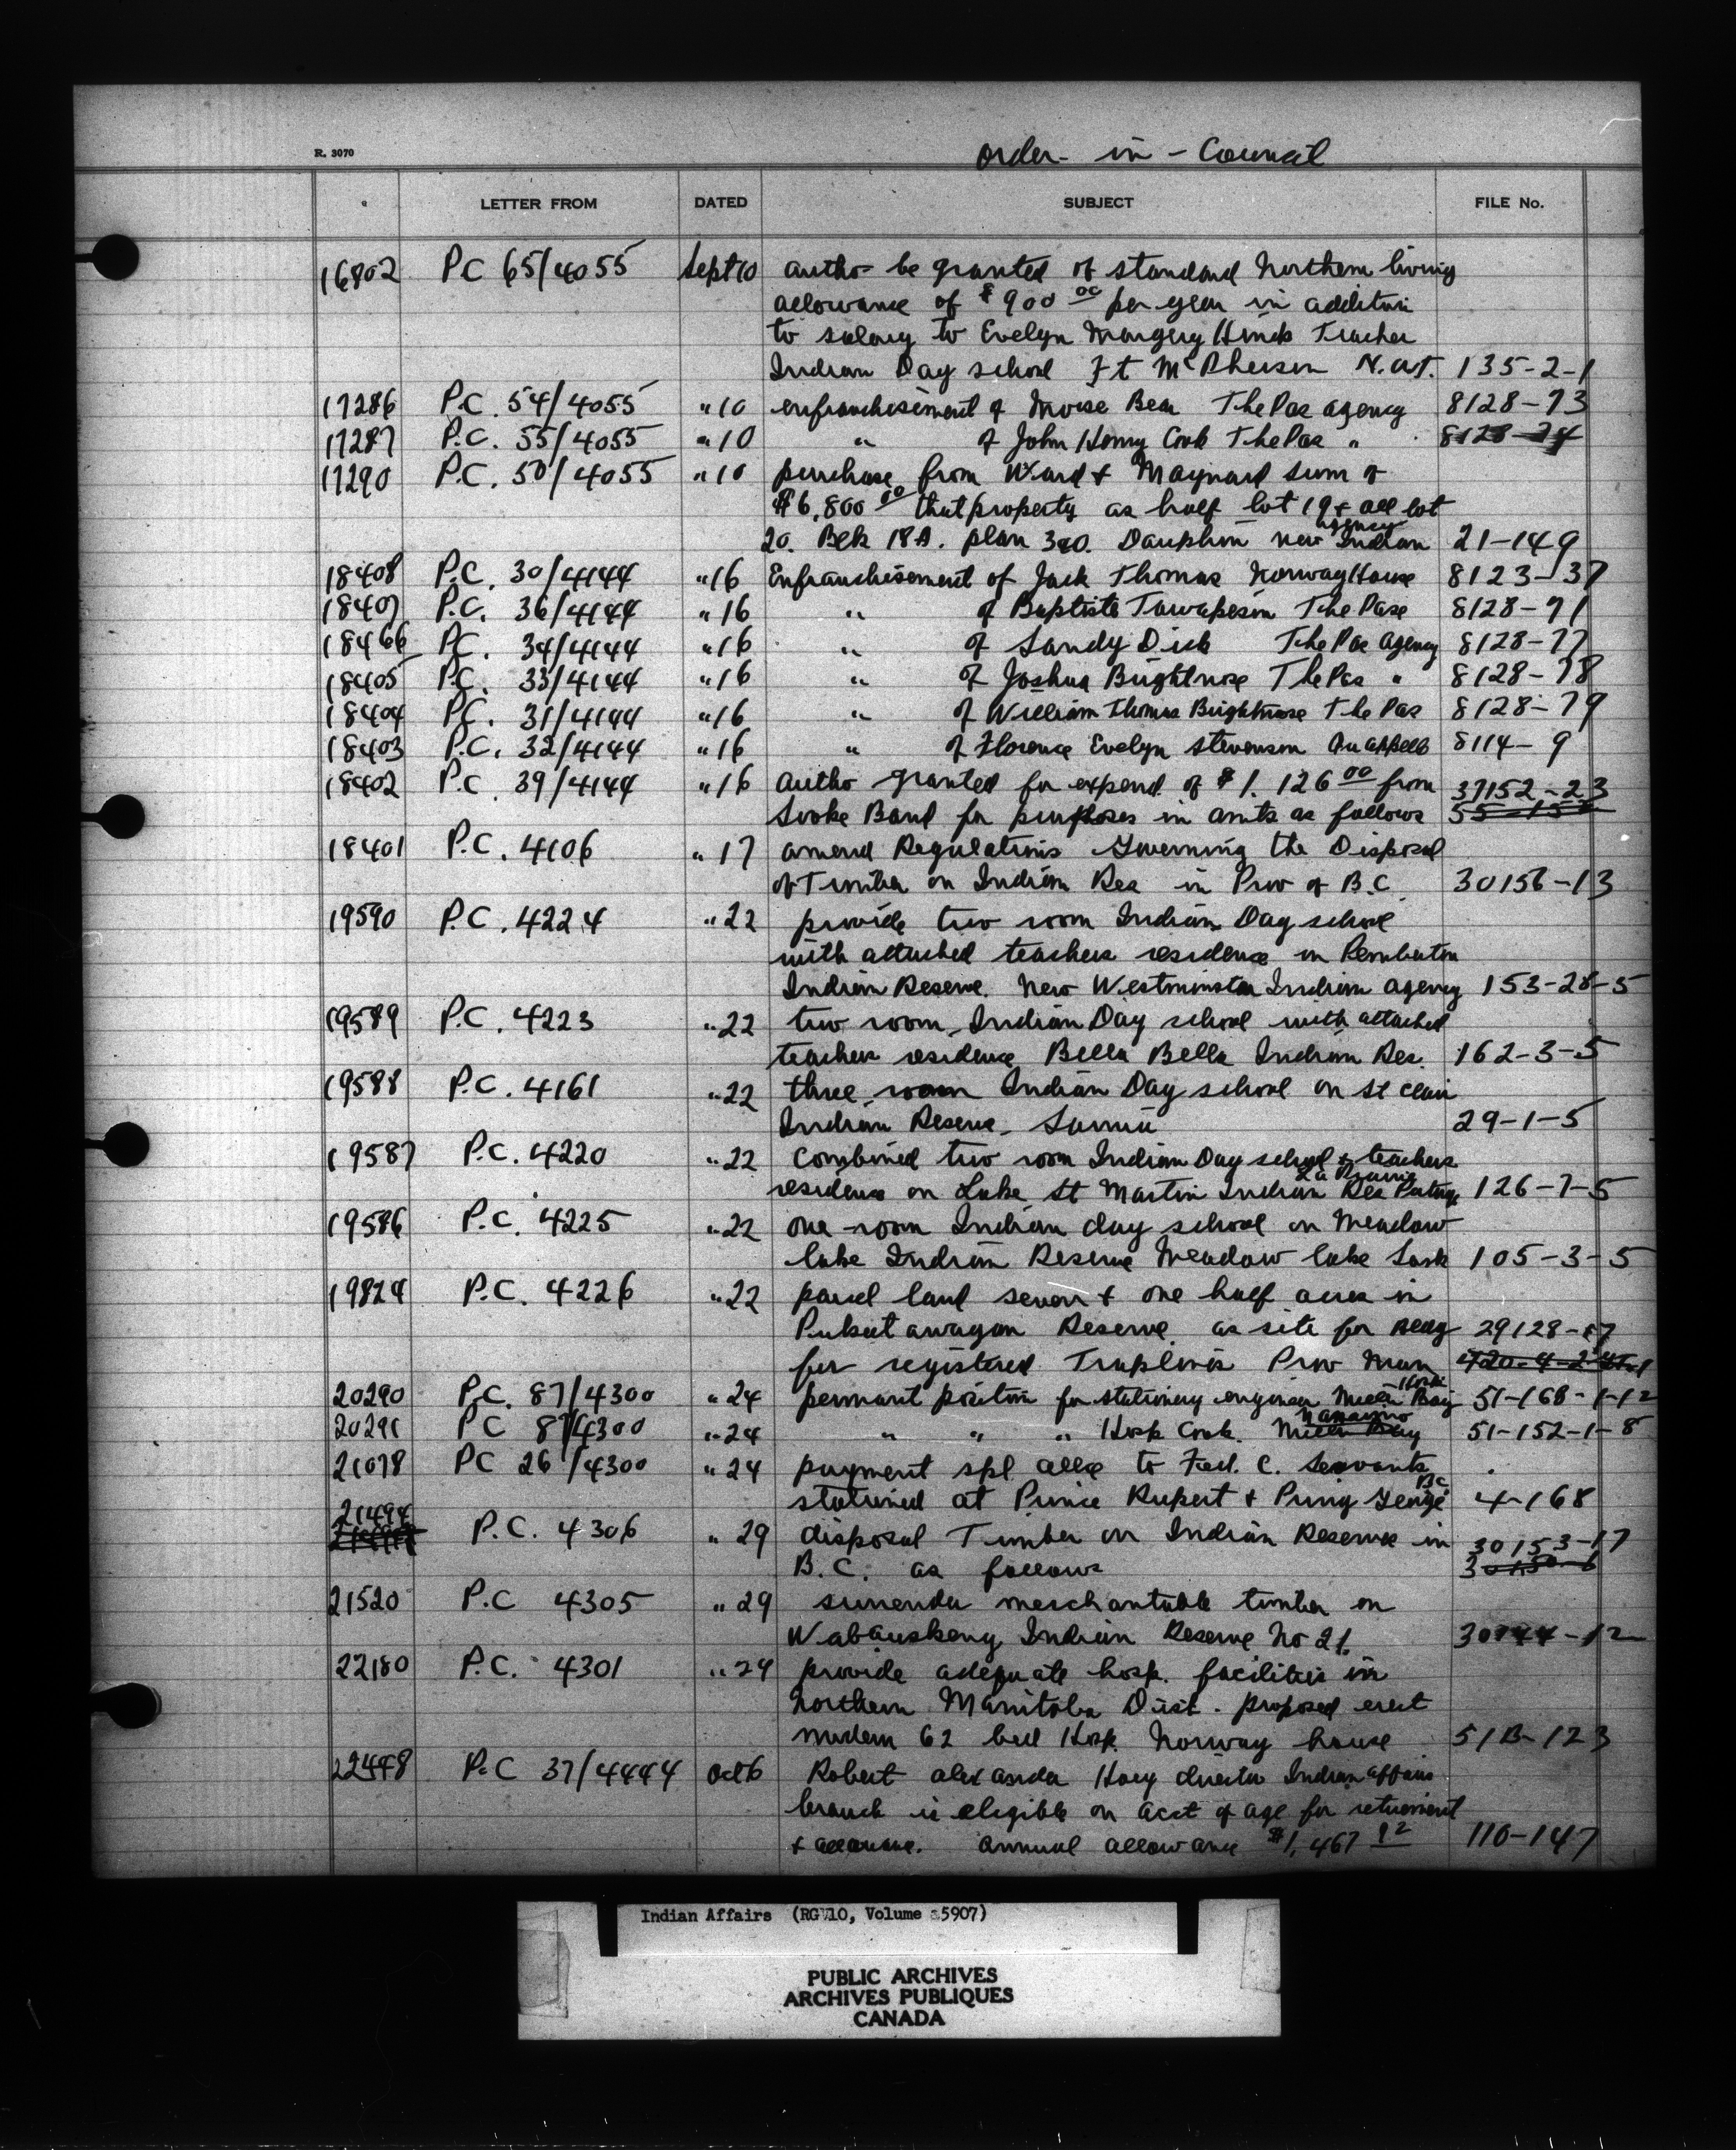 R. 3070
Order - in - Council
LETTER FROM DATED SUBJECT FILE No.
16802 P.C 65/4055 Sept 10 autho be granted of standard Northern living
allowance of $900 00 per year in addition
to salary to Evelyn Margery Hinds Teacher
Indian Day school Ft McPherson N.W.T. 135-2-1
17286 P.C. 54/4055 " 10 enfranchisement of Moise Bear The Pas agency 8128-73
17287 P.C. 55/4055 " 10 " of John Henry Cook The Pas " 8128-74
17290 P.C. 50/4055 " 10 purchase from Ward & Maynard sum of
$6,800 00 that property as half lot 19 & all lot
20. Blk 18A. plan 320. Dauphin new Indian agency 21-149
18408 P.C. 30/4144 " 16 Enfranchisement of Jack Thomas Norway House 8123-37
18407 P.C. 36/4144 " 16 " of Baptiste The Pase 8128-71
18466 P.C. 34/4144 " 16 " of Sandy Dick The Pas Agency 8128-77
18405 P.C. 33/4144 " 16 " of Joshua Brightnose The Pas " 8128-78
18404 P.C. 31/4144 " 16 " of William Thomas Brightnose The Pas 8128-79
18403 P.C. 32/4144 " 16 " of Florence Evelyn Stevenson Qu'appelle 8114-9
18402 P.C 39/4144 " 16 Autho granted for expend. of $1.126 00 from 37152-23
Sooke Band for purposes in amts as follows
18401 P.C. 4106 " 17 amend Regulations Governing the Disposal
of Timber on Indian Res in Prov of B.C. 30156-13
19590 P.C. 4224 " 22 provide two room Indian Day school
with attached teachers residence on Pemberton
Indian Reserve. New Westminster Indian Agency 153-28-5
19589 P.C. 4223 " 22 two room Indian Day school with attached
teachers residence Bella Bella Indian Res. 162-3-5
19588 P.C. 4161 " 22 three room Indian Day school on St Clair
Indian Reserve - Sarnia 29-1-5
19587 P.C. 4220 " 22 Combined two room Indian Day school & teachers
residence on Lake St Martin Indian Res Portage La Prairie 126-7-5
19586 P.C. 4225 " 22 one room Indian day school on Meadow
lake Indian Reserve Meadow lake Sask 105-3-5
19824 P.C. 4226 " 22 parcel land seven & one half acres in
Pukatawagan Reserve as site for Bldg 29128-17
for registered Traplines Prov Man
20290 P.C. 87/4300 " 24 permant position for stationery engineer Miller Bay Hosp 51-168-1-12
20291 P.C 87/4300 " 24 " " " Hosp Cook. Miller Bay Nanaimo 51-152-1-8
21078 PC 26/4300 " 24 payment spl allce to Fed. C. Servants
stationed at Prince Rupert & Pring George B.C. 4-168
21494 P.C. 4306 " 29 disposal Timber on Indian Reserves in 30153-17
B.C. as follows
21520 P.C 4305 " 29 surrender merchantable timber on
Wabauskang Indian Reserve No 21.
22180 P.C. 4301 " 24 provide adequate hosp. facilities in
Northern Manitoba Dist. proposed erect
modern 62 bed Hosp. Norway house 51B-123
22448 P.C 37/4444 Oct 6 Robert alexander Hoey director Indian Affairs
branch is eligible on acct of age for retirement
& allowance. annual allowance $1,467 92 110-147
Indian Affairs (RG 10, Volume 5907)
PUBLIC ARCHIVES
ARCHIVES PUBLIQUES
CANADA